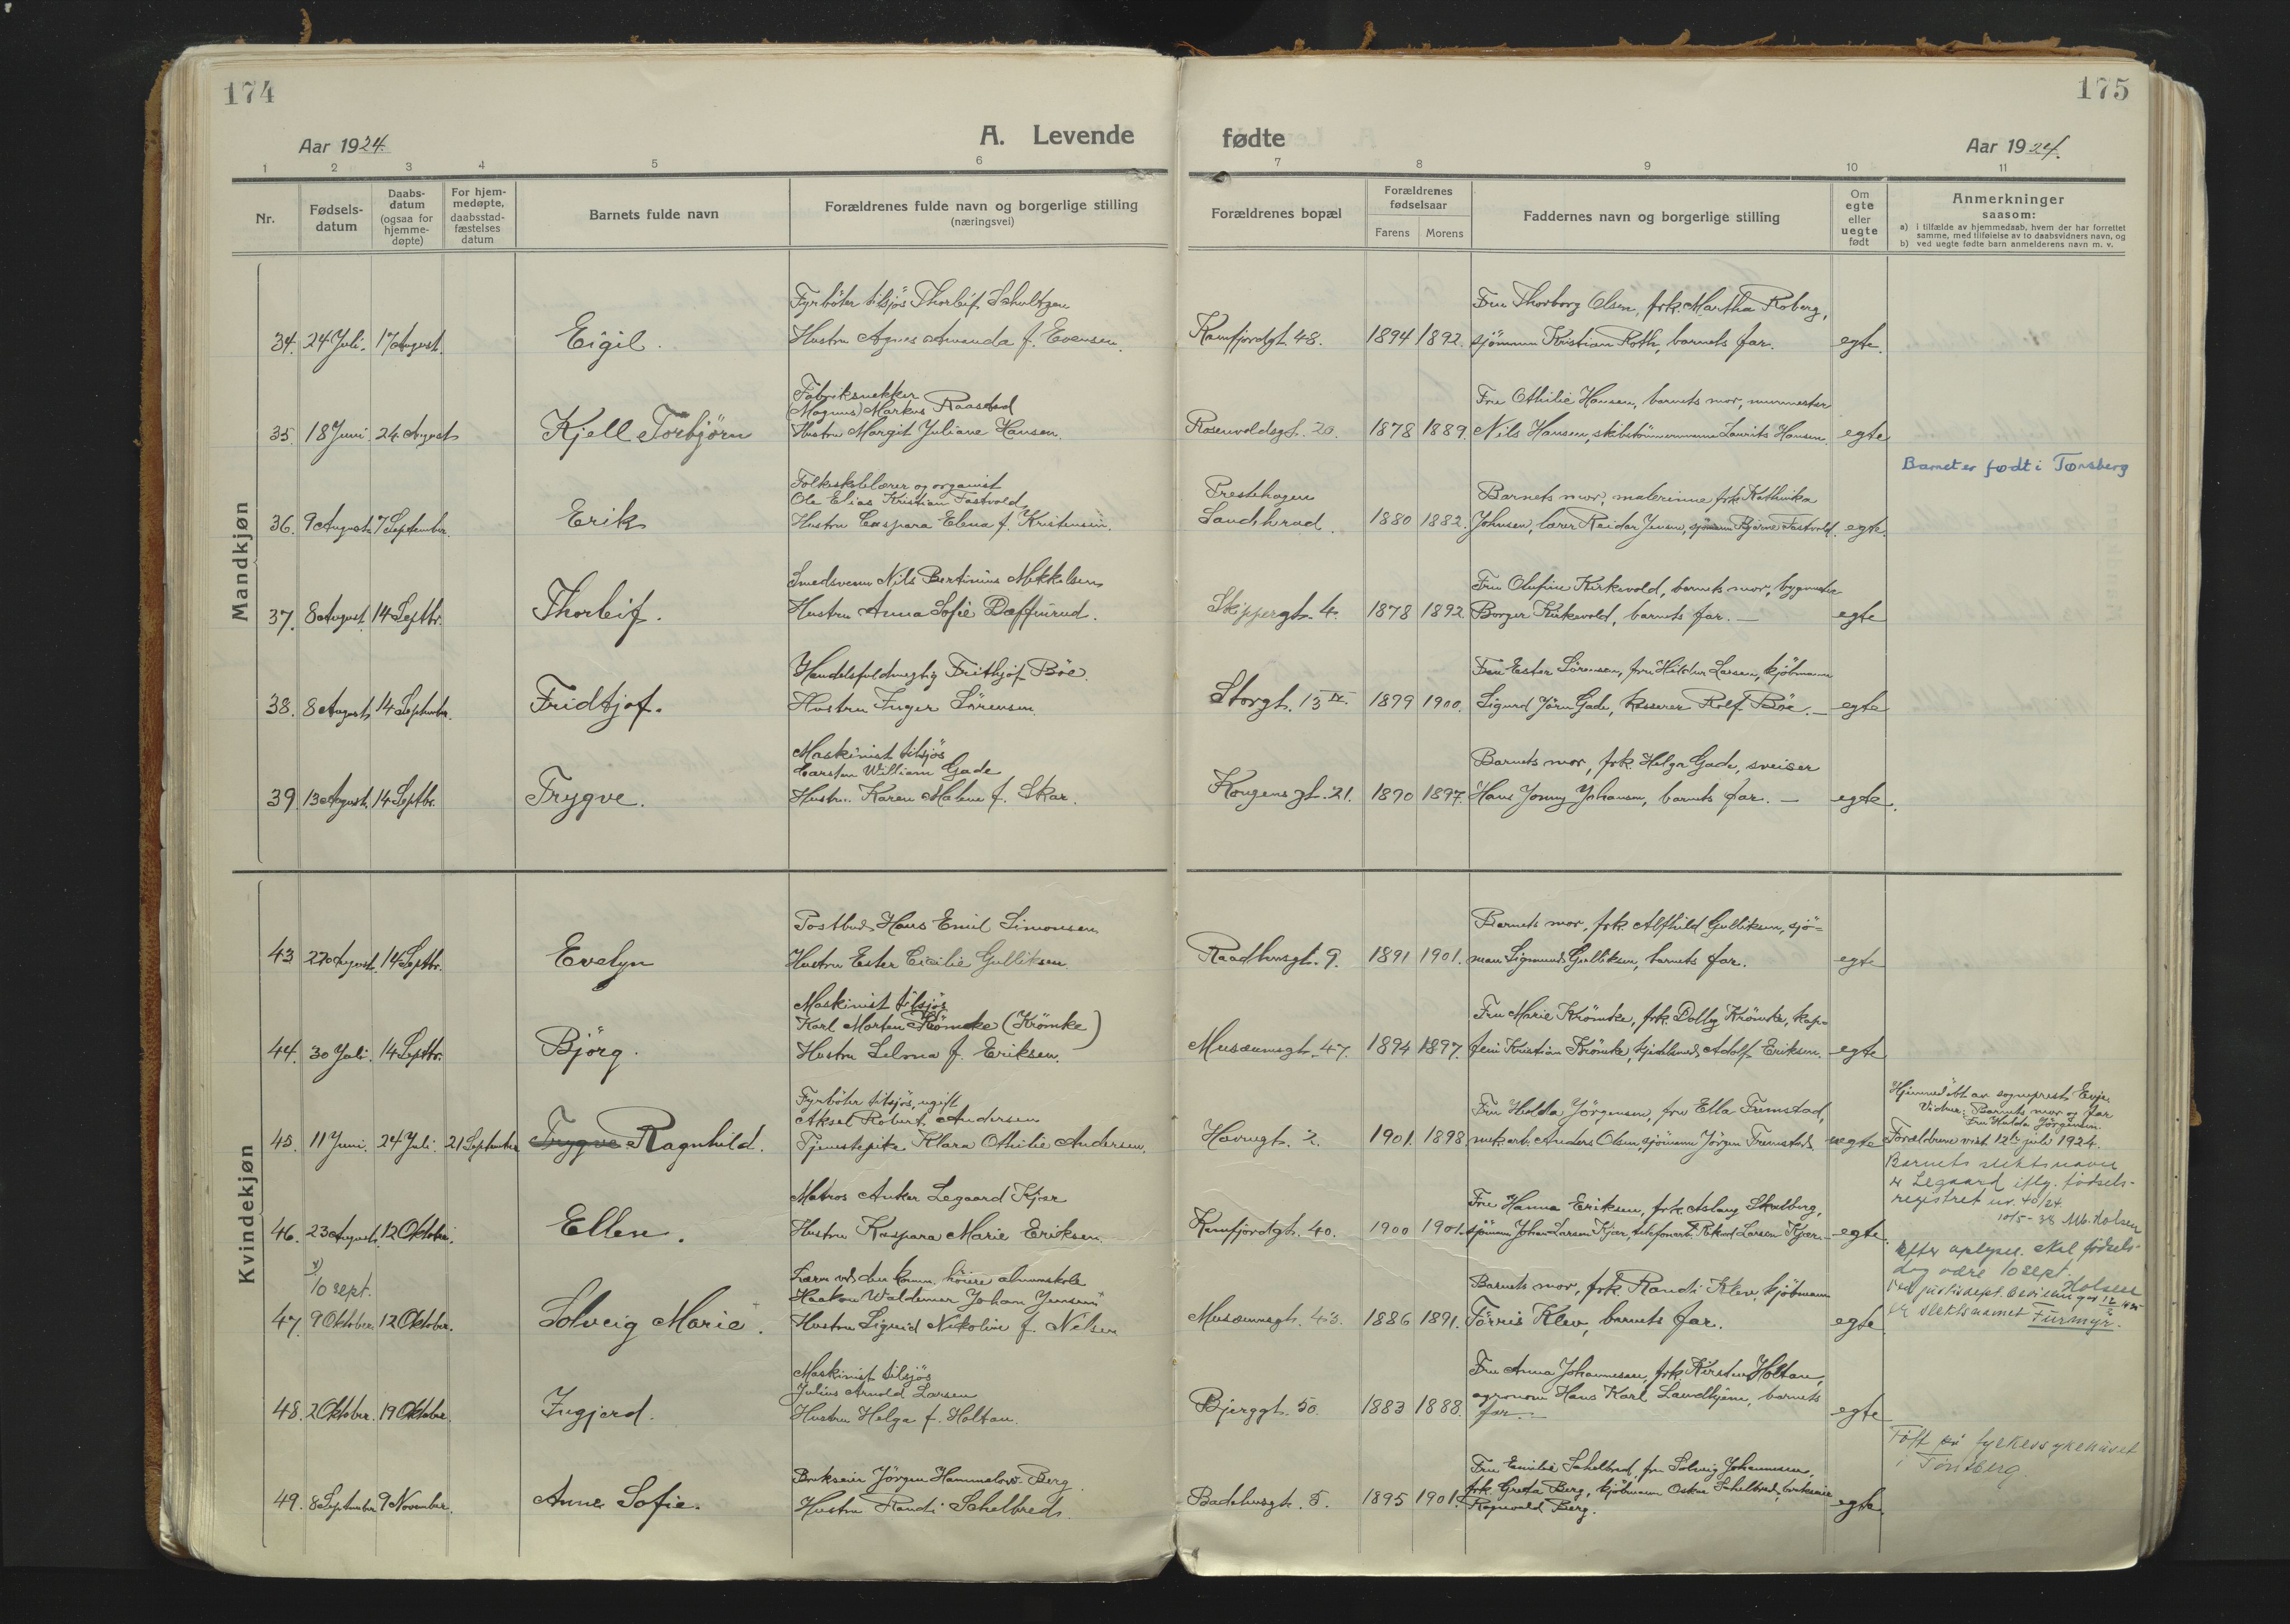 174
Aar 1924.
A. Levende
1 2 3 4 5 6
Nr.
Fødsels-
datum
Daabs-
datum
(ogsaa for
hjemme-
døpte)
For hjem-
medøpte,
daabsstad-
fæstelses
datum
Barnets fulde navn
Forældrenes fulde navn og borgerlige stilling
(næringsvei)
Mandkjøn
Fyrbøter tilsjøs Thorleif Schultzen
34. 24 Juli. 17 August. Eigil. Hustru Agnes Amanda f. Evensen.
Fabriksnekker
(Magnus) Markus Raastad
35. 18 Juni. 24 August Kjell Torbjörn Hustru Margit Juliane Hansen.
Folkeskolelærer og organist
Ole Elias Kristian Fastvold
36. 9 August 7 September. Erik Hustru Caspara Elena f. Kristensen.
Smedsvenn Nils Bertinius Mikkelsen
37. 8 August 14 Septbr. Thorleif. Hustru Anna Sofie Dæffinrud.
Handelsfuldmegtig Frithjof Böe.
38. 8 August 14 September. Fridtjof. Hustru Inger Sörensen.
Maskinist tilsjøs
Carsten William Gade
39. 13 August. 14 Septbr. Trygve. Hustru Karen Malene f. Skar.
Kvindekjøn
Postbud Hans Emil Simonsen
43 27 August. 14 Septbr. Evelyn Hustru Ester Cecilie Gulliksen.
Maskinist tilsjøs
Karl Morten (Krömke)
44. 30 Juli. 14 Septbr. Björg. Hustru Selma f. Eriksen.
Fyrböter tilsjøs, ugift
Aksel Robert Andersen
45. 11 Juni. 24 Juli. 21 September Trygve Ragnhild. Tjenestepike Klara Othilie Andersen.
Matros Anker Legaard Kjær
46. 23 August. 12 Oktober. Ellen. Hustru Kaspara Marie Eriksen.
x)
10 sept.
Lærer ved den komm. höiere almenskole
Haakon Waldemar Johan Jensen
47. 9 Oktober. 12 Oktober. Solveig Marie. Hustru Sigrid Nikoline f. Nilsen
Maskinist tilsjøs
Julius Arnold Larsen
48. 2 Oktober. 19 Oktober. Ingjerd. Hustru Helga f. Holtan.
Brukseier Jörgen Hammelow Berg
49. 8 September 9 November. Anne Sofie. Hustru Randi Schelbred.
175
fødte
Aar 1924.
7 8 9 10 11
Forældrenes bopæl
Forældrenes
fødselsaar
Farens Morens
Faddernes navn og borgerlige stilling
Om
egte
eller
uegte
født
Anmerkninger
saasom:
a) i tilfælde av hjemmedaab, hvem der har forrettet
samme, med tilføielse av to daabsvidners navn, og
b) ved uegte fødte barn anmelderens navn m. v.
Fru Thorborg Olsen, frk. Martha Roberg,
Kamfjordgt. 48. 1894 1892. sjömann Kristian Roth, barnets far. egte.
Fru Othilie Hansen, barnets mor, murmester
Rosenvoldsgt. 20. 1878 1889. Nils Hansen, skibstömmermann Laurits Hansen. egte
Barnet er født i Tønsberg
Prestehagen
Barnets mor, malerinne frk. Kathinka
Sandeherad. 1880 1882. Johnsen, lærer Reidar Jensen, sjömann Bjarne Fastvold. egte.
Fru Olufine Kirkevold, barnets mor, bygmester
Skippergt. 4. 1878 1892. Borger Kirkevold, barnets far. — egte
Fru Ester Sörensen, fru Hildur Larsen, kjöbmann
Storgt. 13 IV. 1879 1900. Sigurd Jörn Gade, kasserer Rolf Böe. — egte
Barnets mor, frk. Helga Gade, sveiser
Kongensgt. 21. 1890 1897. Hans Jonny Johansen, barnets far. — egte.
Barnets mor, frk. Alfhild Gulliksen, sjö=
Raadhusgt. 9. 1891 1901. man Sigmund Gulliksen, barnets far. egte
Fru Marie Krömke, frk. Dolly Krömke, kap=
Museumsgt. 47. 1894 1897. tein Kristian Krömke, Adolf Eriksen. egte
Hjemmedöbt av sogneprest Evje.
Vidner: Barnets mor og far
Fru Hulda Jörgensen.
Fru Hulda Jörgensen, fru Ella Fremstad,
Havnegt. 2. 1901. 1898. murarb. Anders Olsen, sjömann Jörgen Fremstad. uegte Forældrene viet 12te juli 1924.
Barnets slektsnavn
er Legaard iflg. fødsels-
registret nr. 40/24.
10/5-38 Holsen
Fru Hanna Eriksen, frk. Aslaug Skalberg,
Kamfjordgt. 40. 1900 1901. sjömann Johan Larsen Kjær, telefonarb. Larsen Kjær. — egte.
Efter oplysn. skal fødsels-
dag være 10 sept.
Holsen
Ved justisdept. bevilling av
er slektsnamet Furmyr.
Barnets mor, frk. Randi Klev, kjöbmann
Museumsgt. 43. 1886 1891. Törris Klev, barnets far. egte
Fru Anna Johannessen, frk. Kirsten Holtan,
agronom Hans Karl Landhjem, barnets
Bjerggt. 50. 1883 1888. far. — egte
Født på fylkessykehuset
i Tönsberg.
Fru Emilie Schelbred, fru Solveig Johannessen,
frk. Greta Berg, kjöbmann Oskar Schelbred, brukseier
Badehusgt. 5. 1895 1901. Ragnvald Berg. egte.